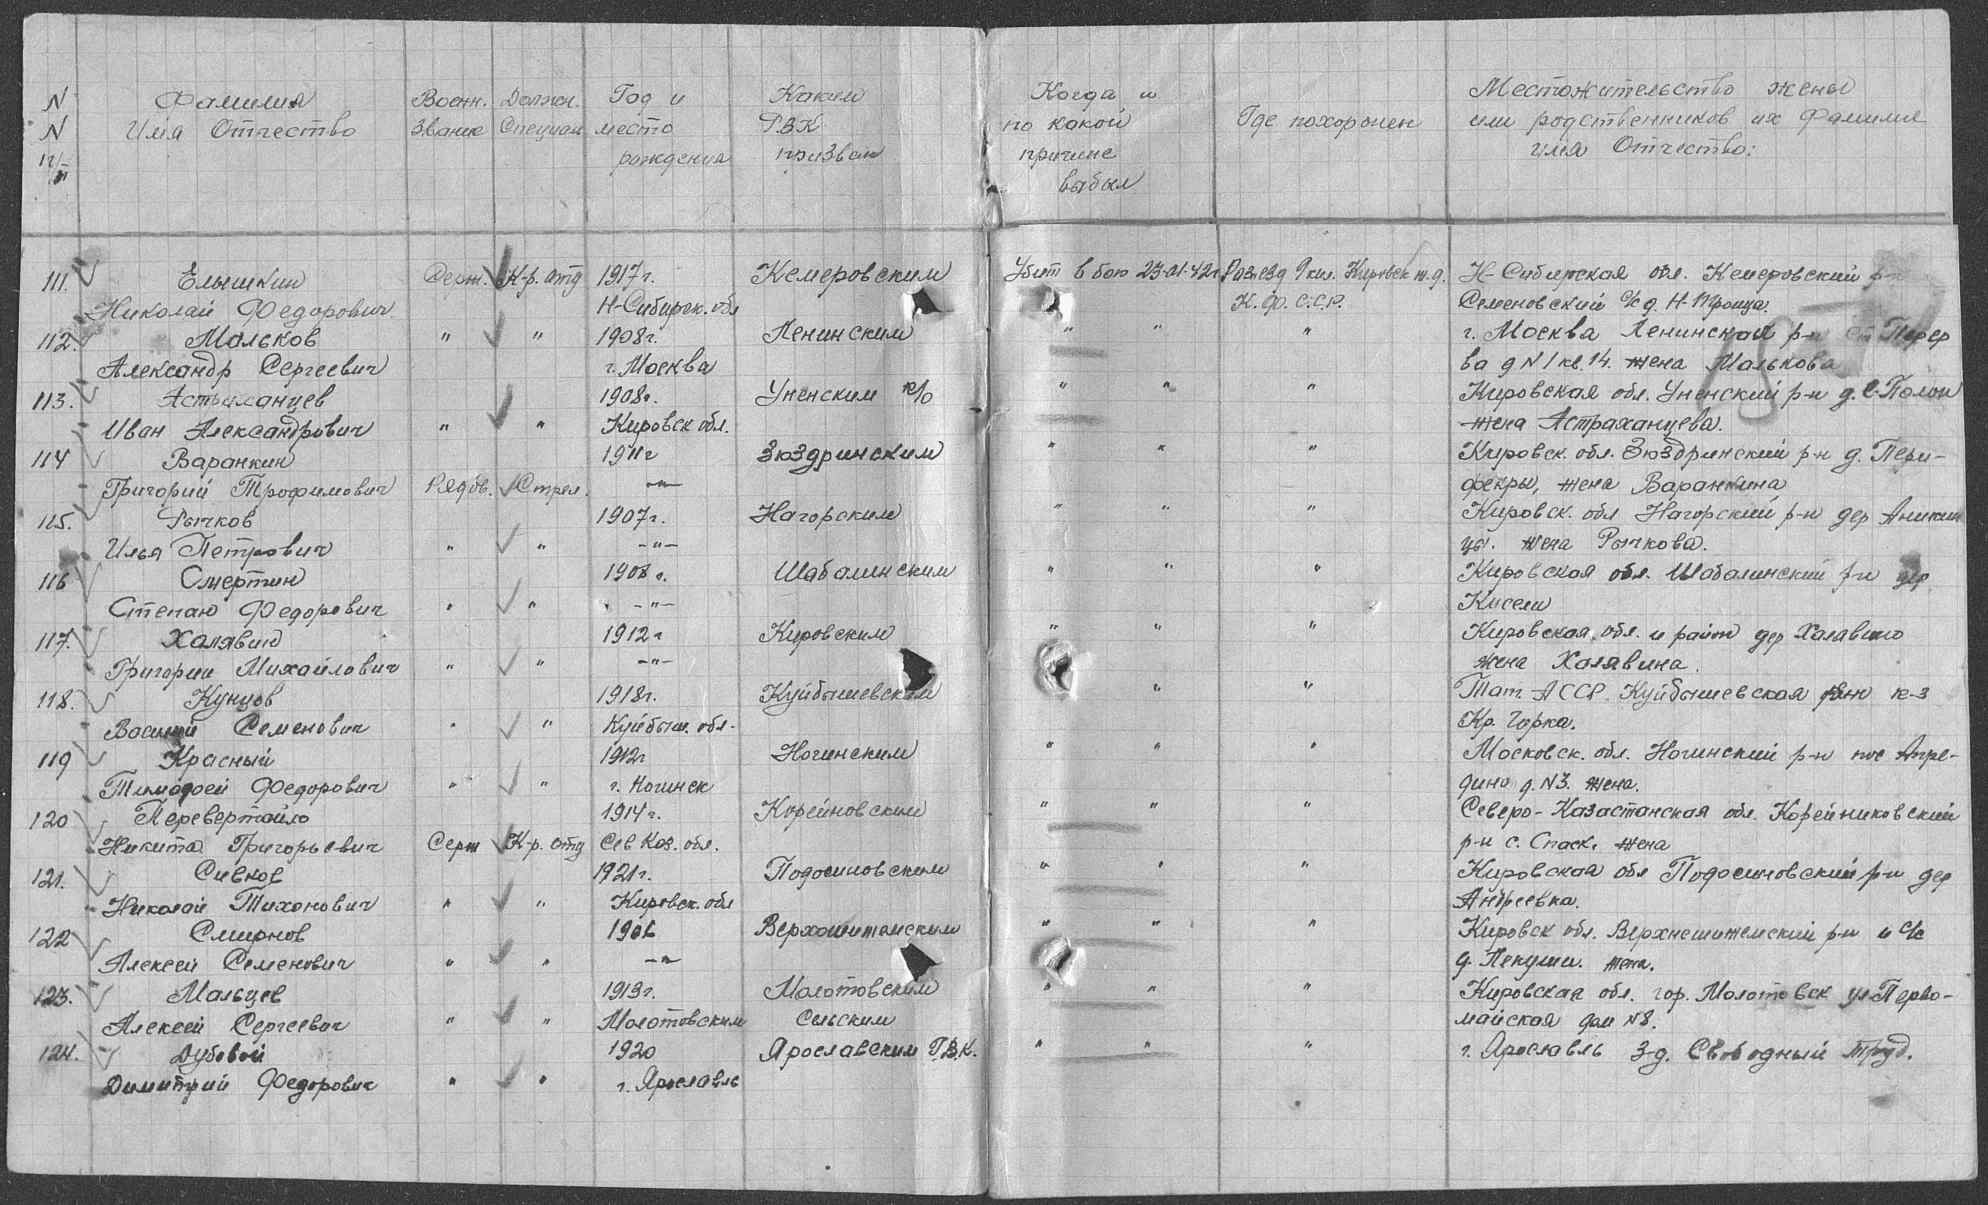 N N п/п
Фамилия Имя Отчество
Военн. Звание
Должн. Специал.
Год и место рождения
Каким РВК призван
Когда и по какой причине выбыл
Где похоронен
Местожительство жены или родственников их Фамилия имя Отчество:
111. Елышкин Серж. К-р. отд 1917г. Кемеровским Убит в бою 23-01-42г. Разъезд 9 км. Кировск ж.д. Н-Сибирская обл. Кемеровский р-н
Николай Федорович Н-Сибирск. обл К. Ф. С.С.Р. Семеновский с/с д. Н-Троица.
112. Мальков " " 1908г. Ленинским " " " г. Москва Ленинской р-н ст Перер
Александр Сергеевич г. Москва ва д N 1 кв. 14. жена Малькова
113. 1908г. Уненским " " " Кировская обл. Уненский р-н д. Полом
Иван Александрович " " Кировск обл. жена Астраханцева.
114 Варанкин 1911г Зюздринским " " " Кировск. обл. Зюздринский р-н д. Пери-
Григорий Трофимович Рядов. Стрел. -"- фекры, жена Варанкина
115. Рычков 1907г. Нагорским " " " Кировск. обл Нагорский р-н дер Аникин
Илья Петрович " " -"- цы. жена Рычкова.
116 Смертин 1908г. Шабалинским " " " Кировская обл. Шабалинский р-н дер
Степан Федорович " " -"- Кисели
117. Халявин 1912г Кировским " " " Кировская, обл. и район дер Халавино
Григорий Михайлович " " -"- жена Халявина.
118. Кунцов 1918г. Куйбышевским " " Тат. АССР. Куйбышевская к-з
Василий Семенович " " Куйбыш. обл. Кр. Горка.
119 Красный 1912г Ногинским " " " Московск. обл. Ногинский р-н пос Апре-
Тимофей Федорович " " г. Ногинск дино д. N3. жена.
120 Перевертайло 1914г. Корейновским " " " Северо-Казастанская обл. Корейниковский
Никита Григорьевич Серж К-р. отд Сев Каз. обл. р-н с. Спаск. жена
121. Сивков 1921г. Подосиновским " " " Кировская обл Подосиновский р-н дер
Николай Тихонович " " Кировск. обл Андреевка.
122 Смирнов Верхошижемским " " " Кировск обл. Верхнешижемский р-н и с/с
Алексей Семенович " " -"- д. Пекуши. жена.
123. Мальцев 1913г. Молотовским " " " Кировская обл. гор. Молотовск ул Перво-
Алексей Сергеевич " " Молотовским Сельским майская дом N8.
124. Дубовой 1920 Ярославским Г.В.К. " " " г. Ярославль 3-д. Свободный труд.
Димитрий Федорович " " г. Ярославль